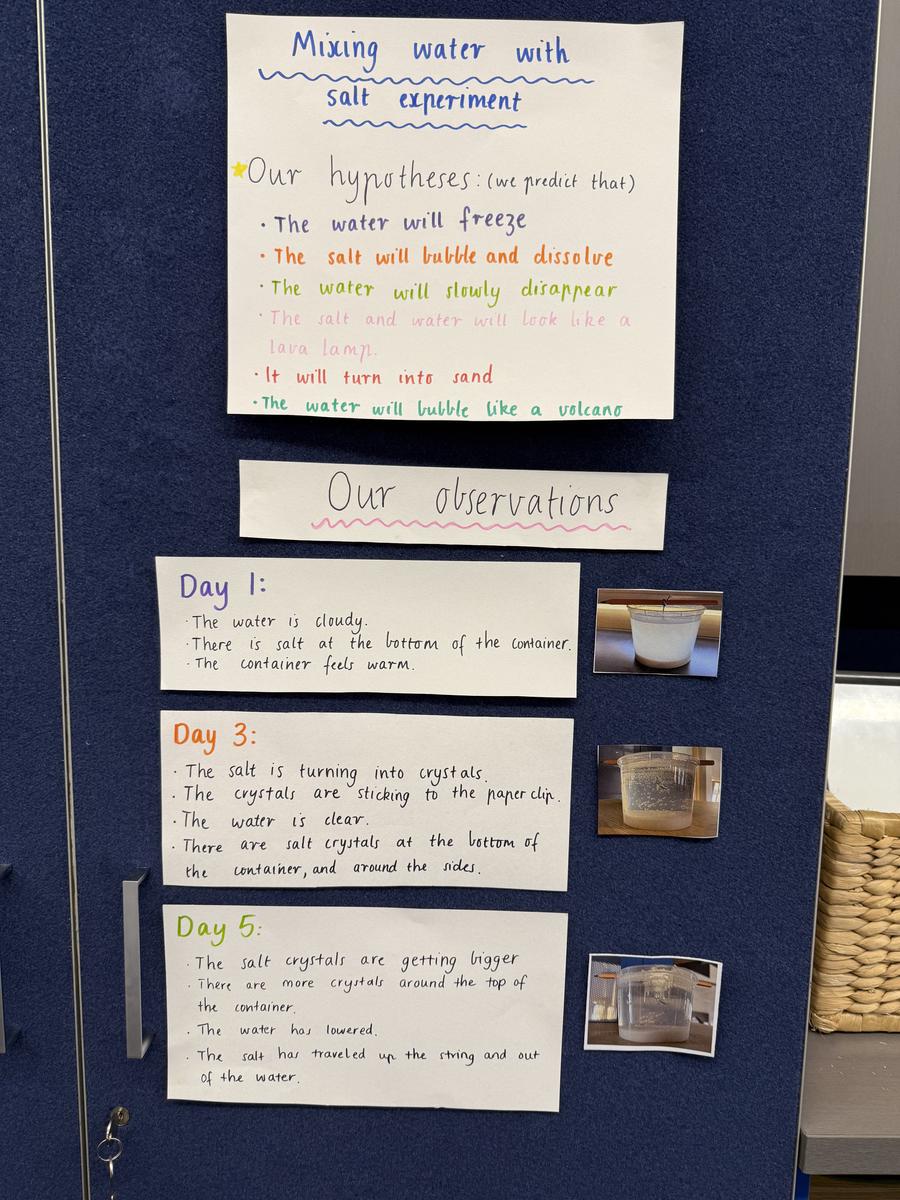 Mixing water with
salt experiment
Our hypotheses: (we predict that)
· The water will freeze
· The salt will bubble and dissolve
· The water will slowly disappear
· The salt and water will look like a
lava lamp.
· It will turn into sand
· The water will bubble like a volcano
Our observations
Day 1:
· The water is cloudy.
· There is salt at the bottom of the container.
· The container feels warm.
Day 3:
· The salt is turning into crystals.
· The crystals are sticking to the paper clip.
· The water is clear.
· There are salt crystals at the bottom of
the container, and around the sides.
Day 5:
· The salt crystals are getting bigger
· There are more crystals around the top of
the container.
· The water has lowered.
· The salt has traveled up the string and out
of the water.